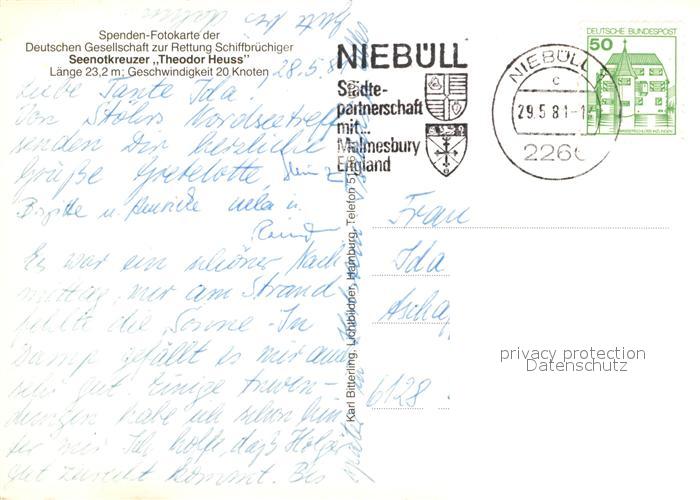 Spenden-Fotokarte der
Deutschen Gesellschaft zur Rettung Schiffbrüchiger
Seenotkreuzer „Theodor Heuss"
Länge 23,2 m; Geschwindigkeit 20 Knoten
28.5.81
Liebe Tante Ida!
Von Stöhrs Nordseetreff
senden Dir herzliche
Grüße Gretelotte Heinz
Birgitte u. Henricke u.
Es war ein schöner Nach
mittag, nur am Strand
fehlte die Sonne. In
Damp gefällt es mir auch
sehr gut. Einige Anwen-
dungen habe ich schon hin
ter mir. Ich hoffe, daß Holger
gut zurecht kommt. Bis
später
Karl Bitterling, Lichtbildner, Hamburg, Telefon
NIEBÜLL
Städte-
partnerschaft
mit...
Malmesbury
England
NIEBÜLL
c
29.5.81-1
2260
DEUTSCHE BUNDESPOST
50
WASSERSCHLOSS INZLINGEN
Frau
Ida
Aschaf
6128
privacy protection
Datenschutz